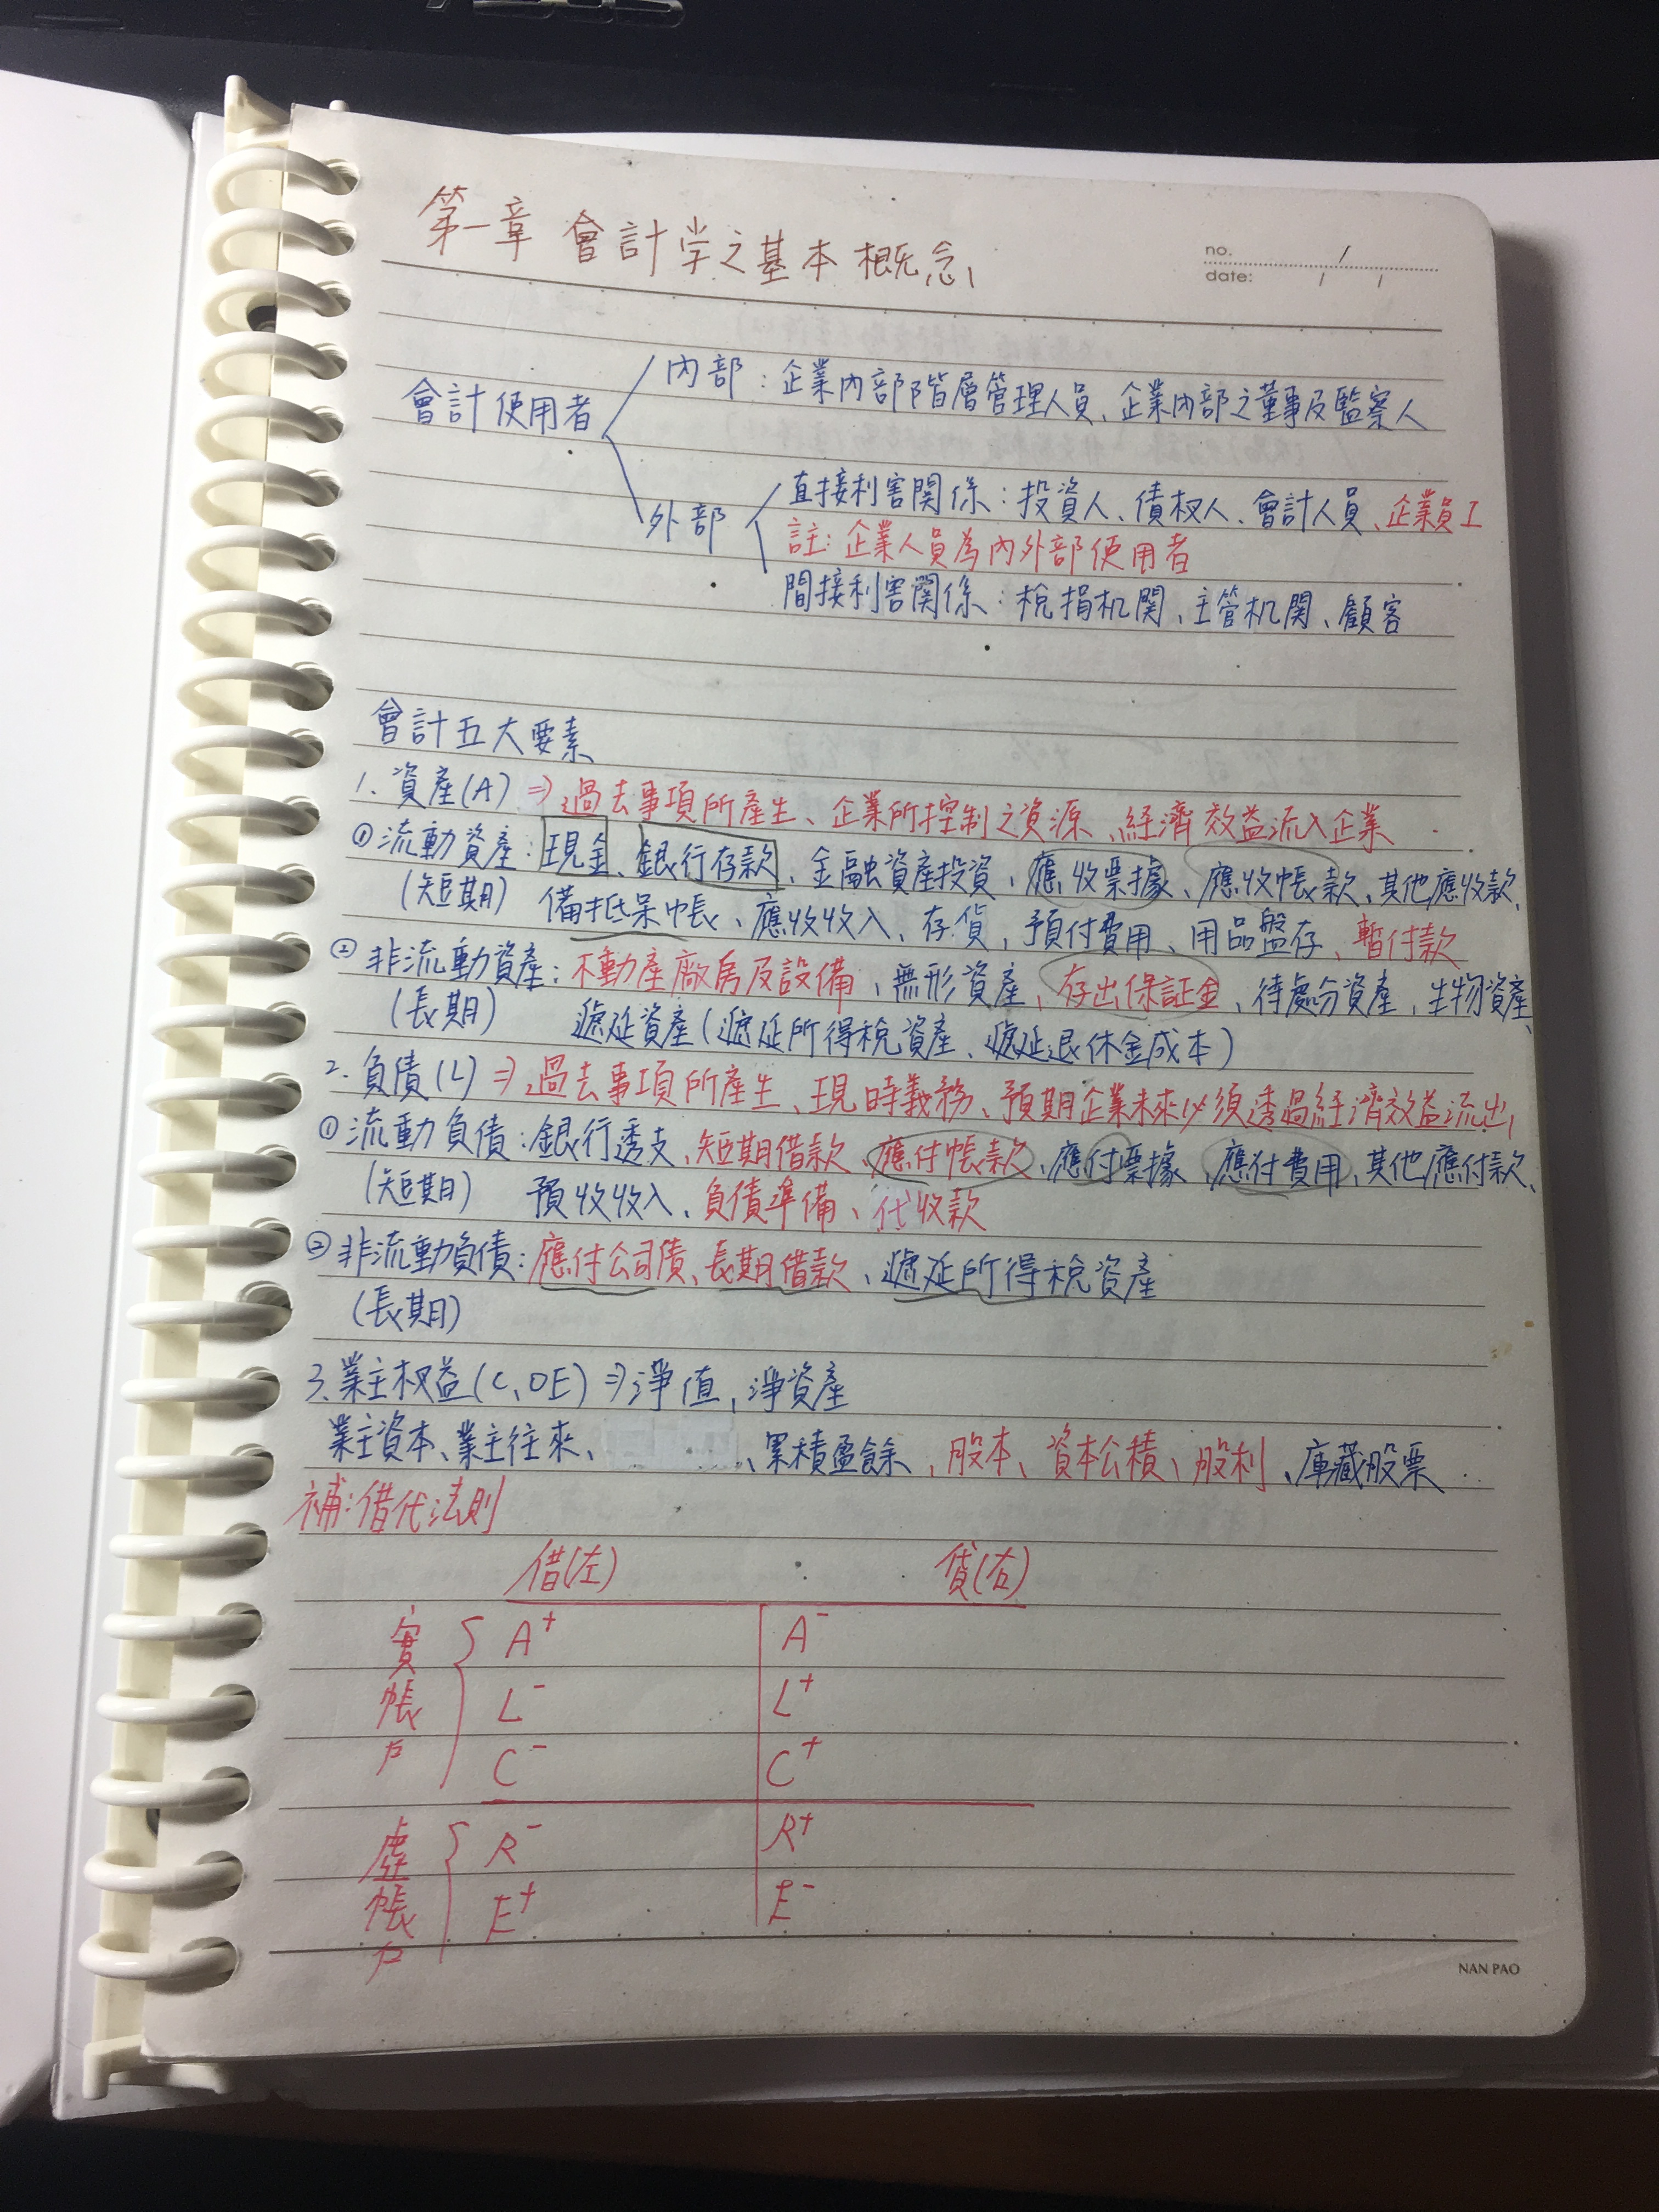 第一章 會計学之基本概念
no. /
date: / /
會計使用者
內部：企業內部階層管理人員、企業內部之董事及監察人
外部
直接利害関係：投資人、債权人、會計人員、企業員工
註：企業人員為內外部使用者
間接利害関係：稅捐机関、主管机関、顧客
會計五大要素
1. 資產(A) ⇒ 過去事項所產生、企業所控制之資源、經濟效益流入企業
① 流動資產：現金、銀行存款、金融資產投資、應收票據、應收帳款、其他應收款、
(短期) 備抵呆帳、應收收入、存貨、預付費用、用品盤存、暫付款
② 非流動資產：不動產廠房及設備、無形資產、存出保証金、待處分資產、生物資產、
(長期) 遞延資產(遞延所得稅資產、遞延退休金成本)
2. 負債(L) ⇒ 過去事項所產生、現時義務、預期企業未來必須透過経濟效益流出
① 流動負債：銀行透支、短期借款、應付帳款、應付票據、應付費用、其他應付款、
(短期) 預收收入、負債準備、代收款
② 非流動負債：應付公司債、長期借款、遞延所得稅資產
(長期)
3. 業主权益(C, OE) ⇒ 淨值, 淨資產
業主資本、業主往來、 、累積盈餘、股本、資本公積、股利、庫藏股票
補：借代法則
借(左) 貸(右)
實帳戶 A⁺ A⁻
L⁻ L⁺
C⁻ C⁺
虛帳戶 R⁻ R⁺
E⁺ E⁻
NAN PAO